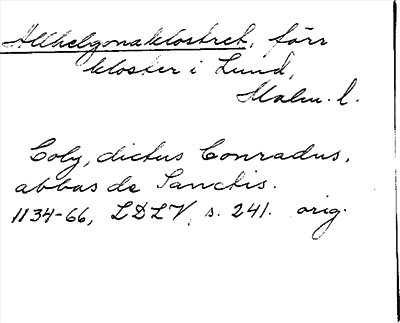 Allhelgonaklostret, förr
kloster i Lund,
Malm. l.
Coly, dictus Conradus,
abbas de Sanctis.
1134-66, LDLV, s. 241. orig.